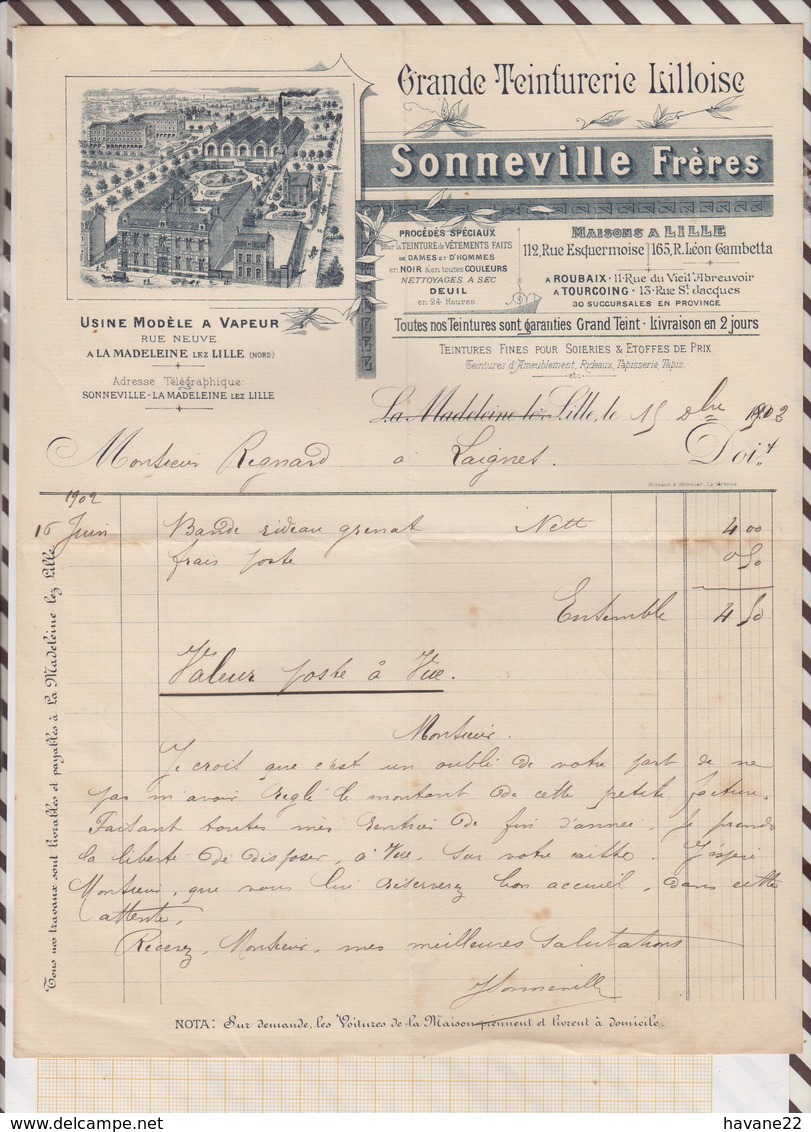 Grande Teinturerie Lilloise
Sonneville Frères
PROCÉDÉS SPÉCIAUX
pour la TEINTURE de VÊTEMENTS FAITS
DE DAMES ET D'HOMMES
en NOIR & en toutes COULEURS
NETTOYAGES A SEC
DEUIL
en 24 Heures
MAISONS A LILLE
112, Rue Esquermoise 165, R. Léon Gambetta
A ROUBAIX · 11 · Rue du Vieil Abreuvoir
A TOURCOING · 13 · Rue St Jacques
30 SUCCURSALES EN PROVINCE
Toutes nos Teintures sont garanties Grand Teint · Livraison en 2 jours
TEINTURES FINES POUR SOIERIES & ETOFFES DE PRIX
Teintures d'Ameublement, Rideaux, Tapisserie, Tapis.
etc.
USINE MODÈLE A VAPEUR
RUE NEUVE
A LA MADELEINE LEZ LILLE (NORD)
Adresse Télégraphique:
SONNEVILLE-LA MADELEINE LEZ LILLE
La Madeleine lez Lille, le 15 Xbre 1903
Monsieur Regnard à Laignes. Doit
1902
16 Juin Bande rideau grenat Nett 4 00
frais poste 0 50
Ensemble 4 50
Valeur poste à Vue.
Monsieur.
Je croit que c'est un oubli de votre part de ne
pas m'avoir reglé le montant de cette petite facture.
Faisant toutes mes rentrées de fin d'année. Je prends
la liberté de disposer, à Vue, sur votre caisse. J'éspère
Monsieur, que vous lui réserverez bon accueil, dans cette
attente,
Recevez, Monsieur, mes meilleures salutations
Sonneville
Tous nos travaux sont livrables et payables à La Madeleine lez Lille
NOTA: Sur demande, les Voitures de la Maison prennent et livrent à domicile.
havane22